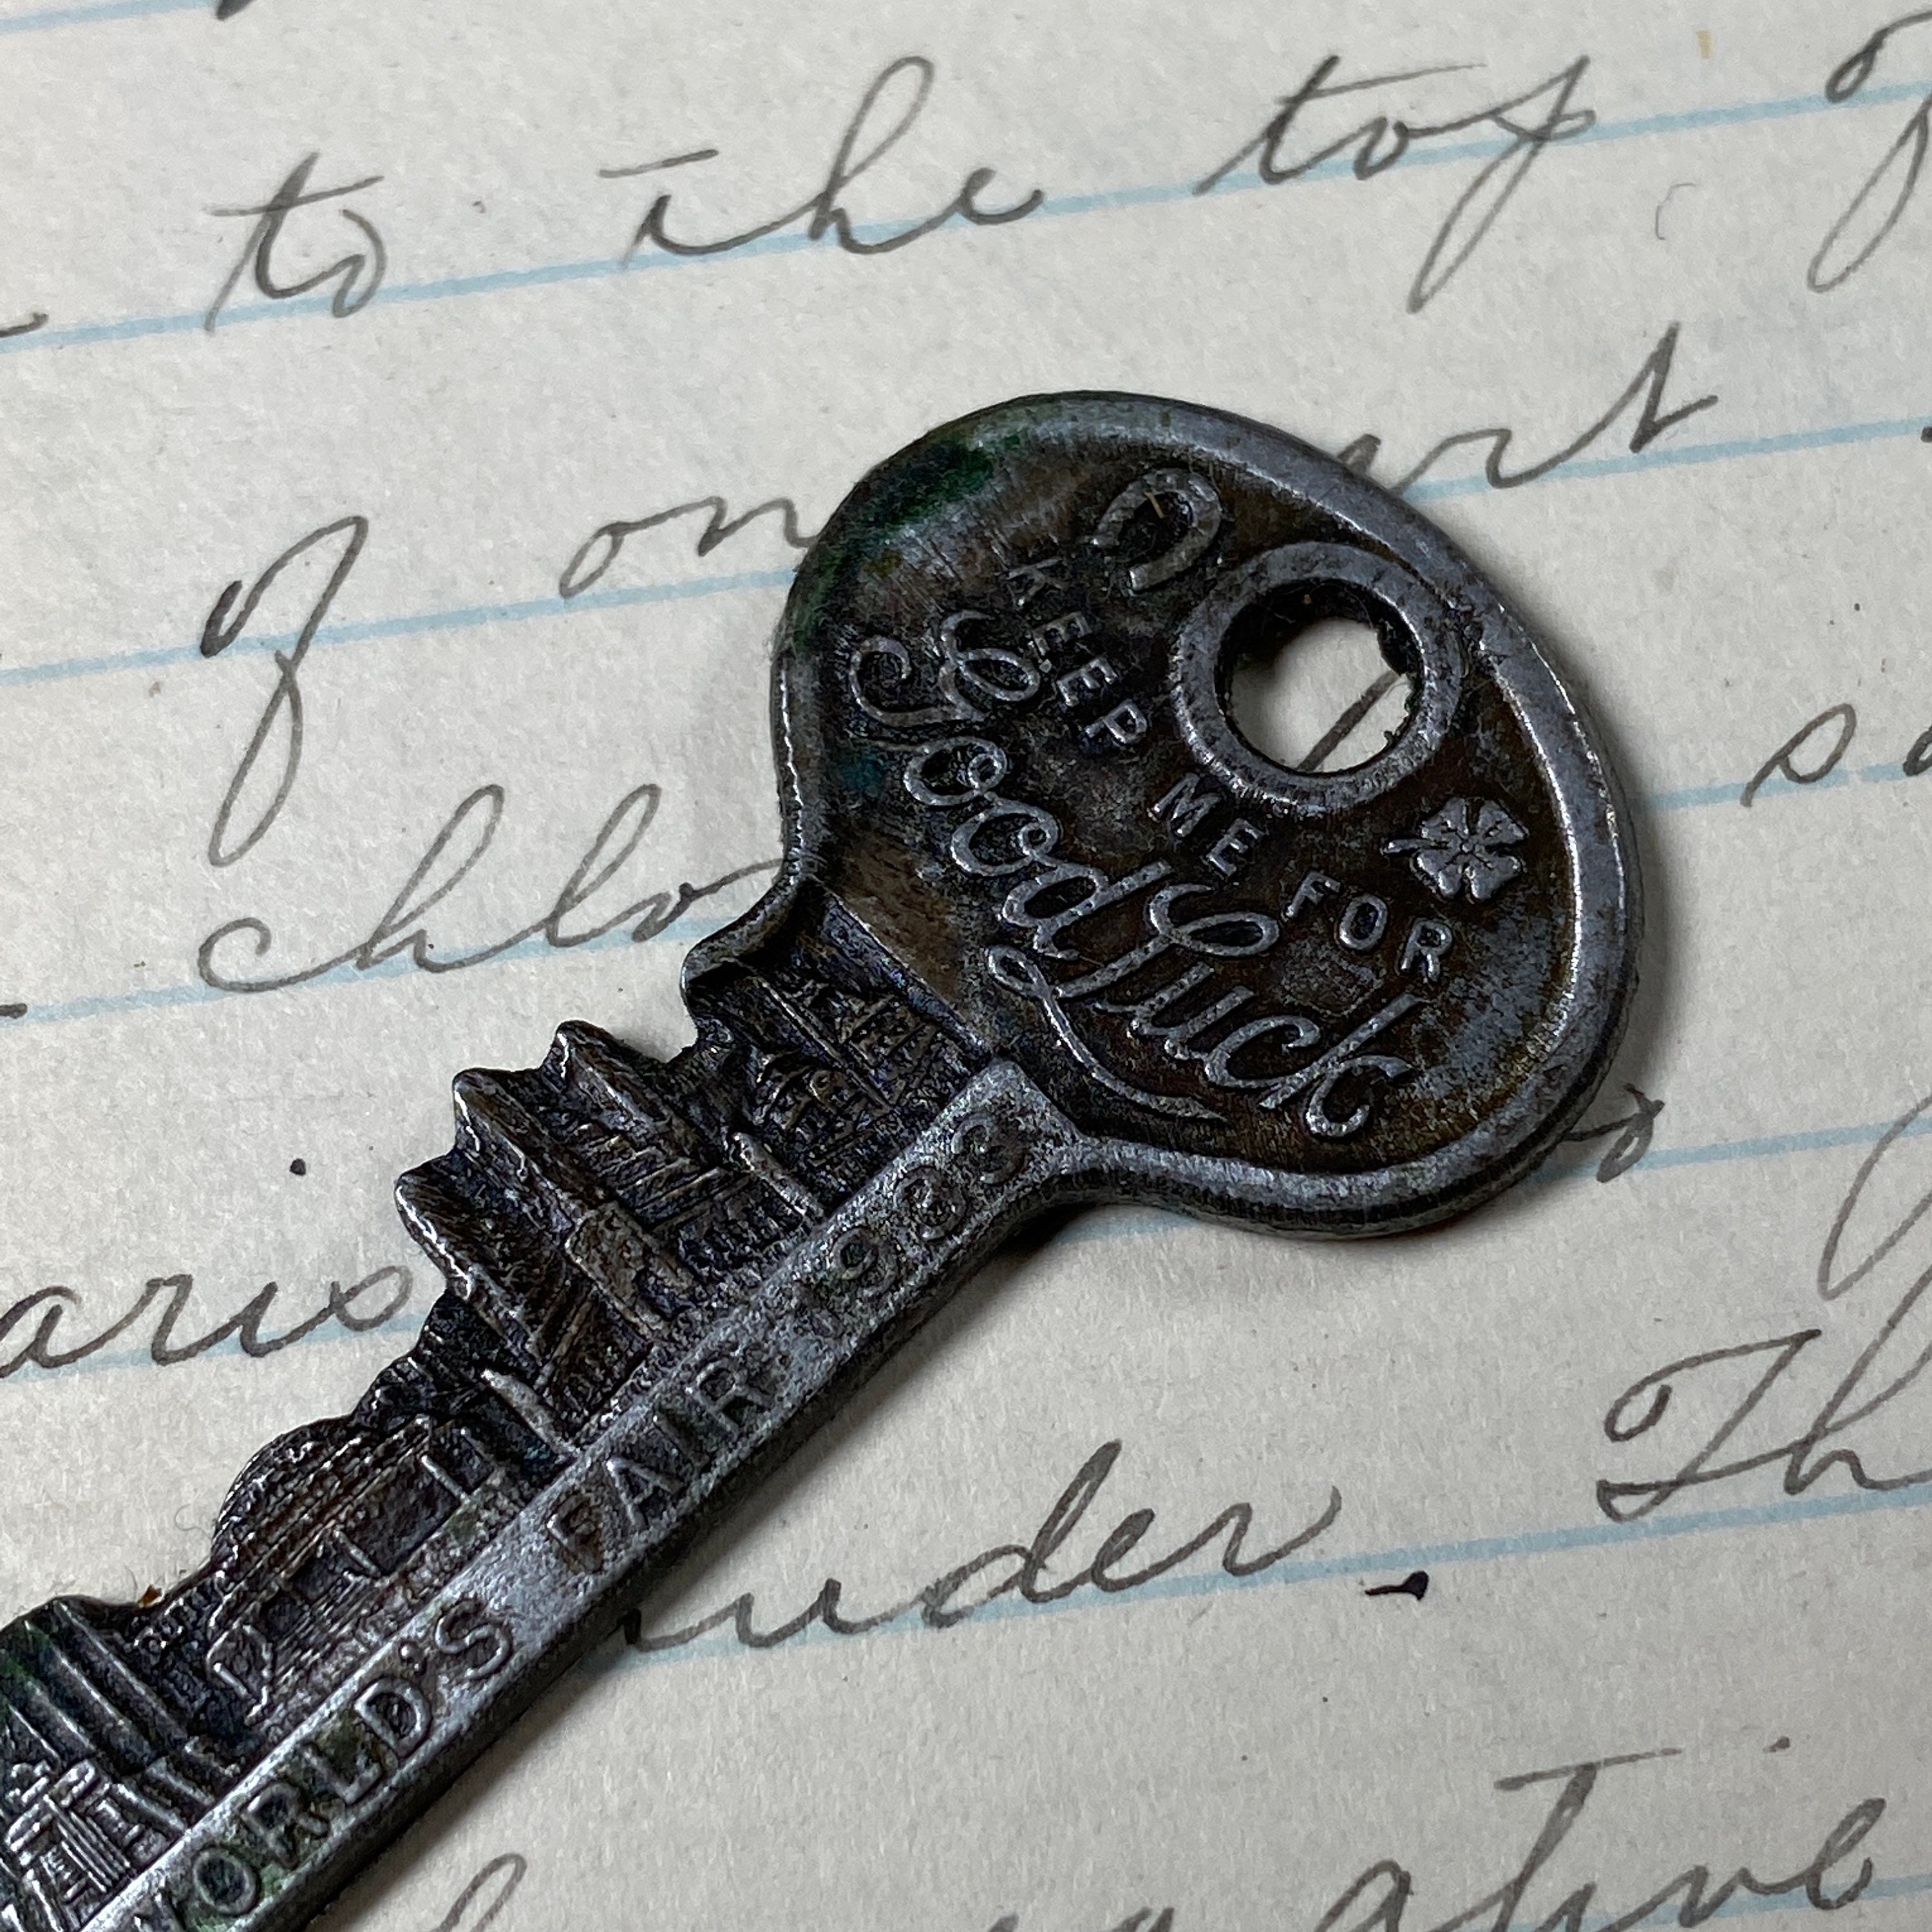 to the top of
of on
chlo
under Th
ative
KEEP ME FOR
Good Luck
WORLD'S FAIR 1933